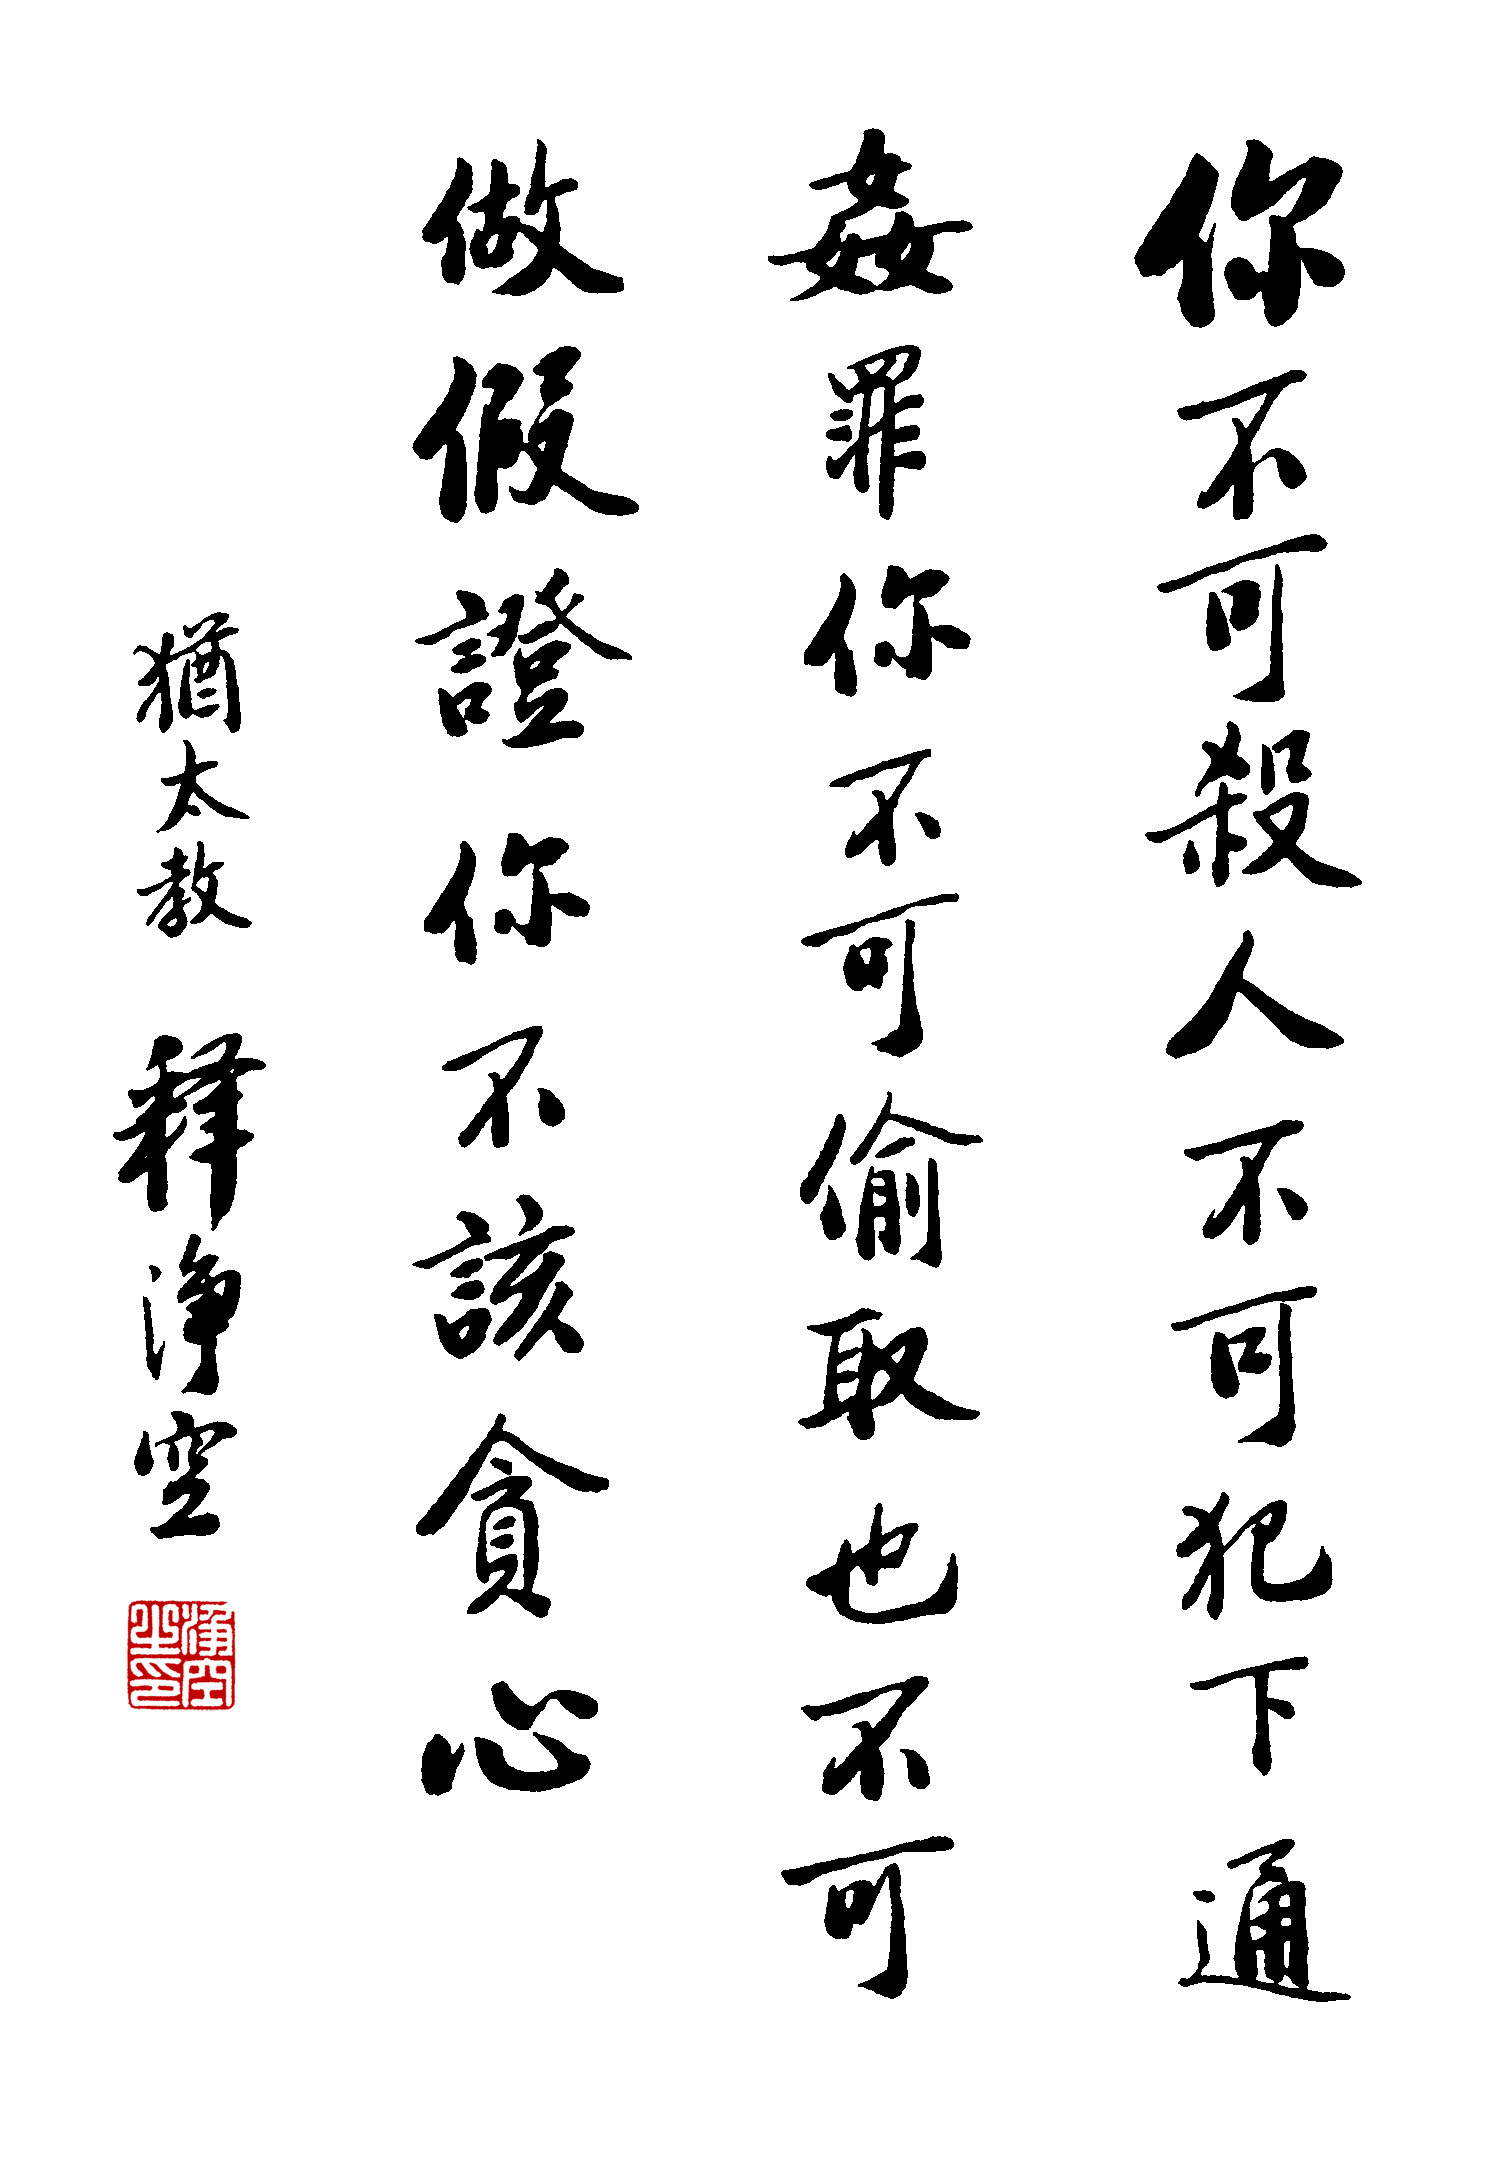 你不可殺人不可犯下通
姦罪你不可偷取也不可
做假證你不該貪心
猶太教 釋淨空
淨空之印